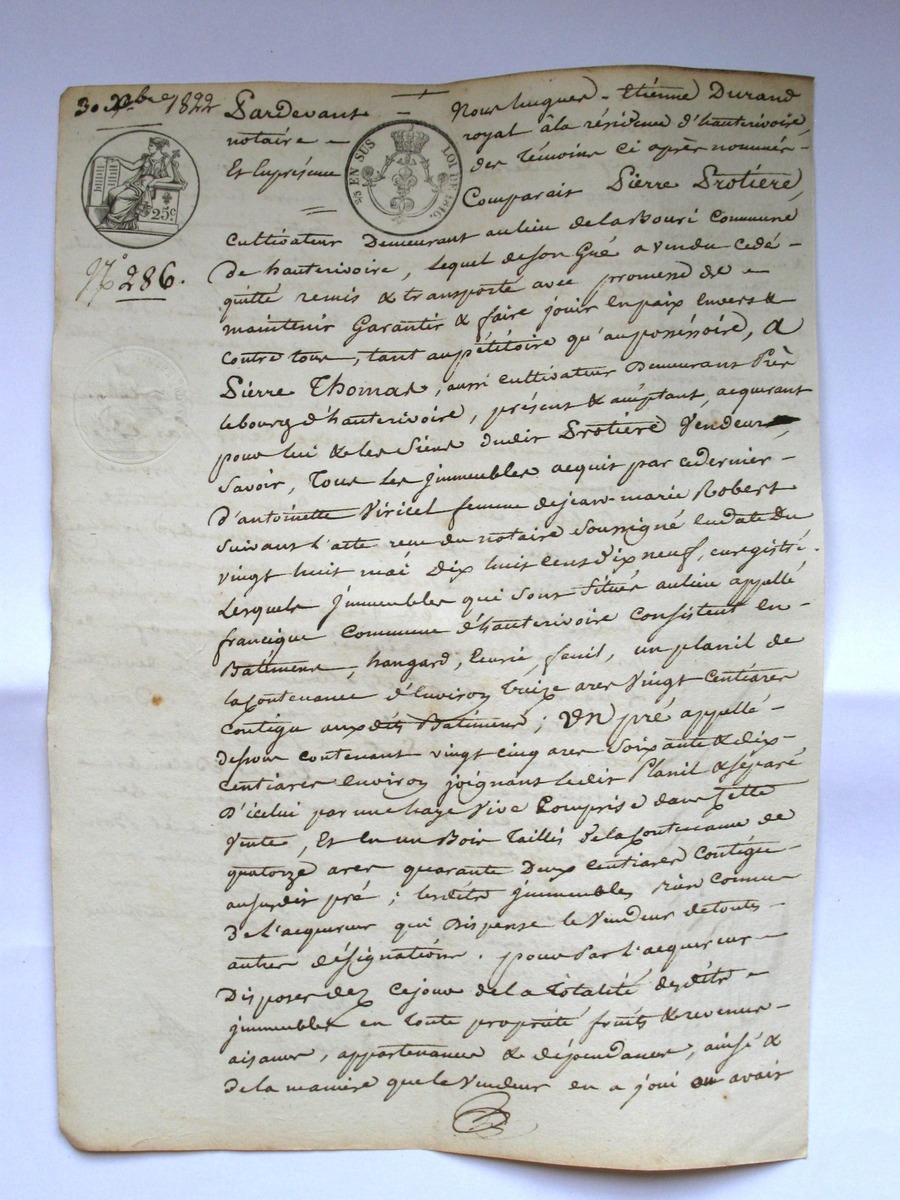 30 Xbre 1822
25c
¼ EN SUS LOI DE 1816.
N° 286.
Pardevant Nous Etiénne Durand
notaire royal à la résidence d'hauterivoire
Et En présence des témoins ci après nommés
Comparait Pierre Protiere,
Cultivateur Demeurant au lieu de la Bouri Commune
De hauterivoire, lequel de son Gré a vendu cedé
quitté remis & transporté avec promesse de
maintenir Garantir & faire jouir En paix Envers &
Contre tous, tant au pétitoire qu'au possessoire, a
Pierre Thomas, aussi cultivateur Demeurant Près
le bourg d'hauterivoire, présent & acceptant, acquerant
pour lui & les Siens dudit Protiere Vendeur,
Savoir, Tous les jmmeubles acquit par ce dernier
d'antoinette Viricel femme de jean-marie Robert
Suivant l'acte reçu du notaire Soussigné En date Du
vingt huit mai Dix huit Cent Dix neuf, enregistré.
Lesquels jmmeubles qui Sont Situés au lieu appellé
francique Commune d'hauterivoire Consistent En
Batimens, hangard, Ecurie, fenil, un planil de
la Contenance d'Environ treize ares Vingt Centiares
Contigu aux dits Batimens; un pré appellé
dessous contenant vingt cinq ares Soixante & dix
Centiares Environ joignant ledit Planil & séparé
D'icelui par une haye Vive Comprise dans Cette
Vente, Et En un Bois Taillis de la Contenance de
quatorze ares quarante Deux Centiares Contigu
au susdit pré; lesdits jmmeubles bien Connus
De l'acquereur qui Dispense le Vendeur de toutes
autres désignations. pour Par l'acquereur
Disposer dez ce jour de la Totalité desdits
jmmeubles en toute propriété fruits & revenus
aisances, appartenances & dépendances, ainsi &
de la maniere que le Vendeur en a joui ou avait